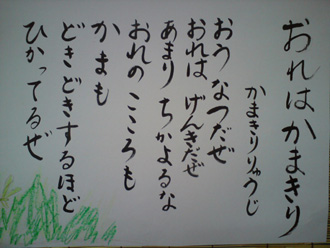 おれはかまきり
かまきりりゅうじ
おう なつだぜ
おれは げんきだぜ
あまり ちかよるな
おれの こころも
かまも
どきどきするほど
ひかってるぜ